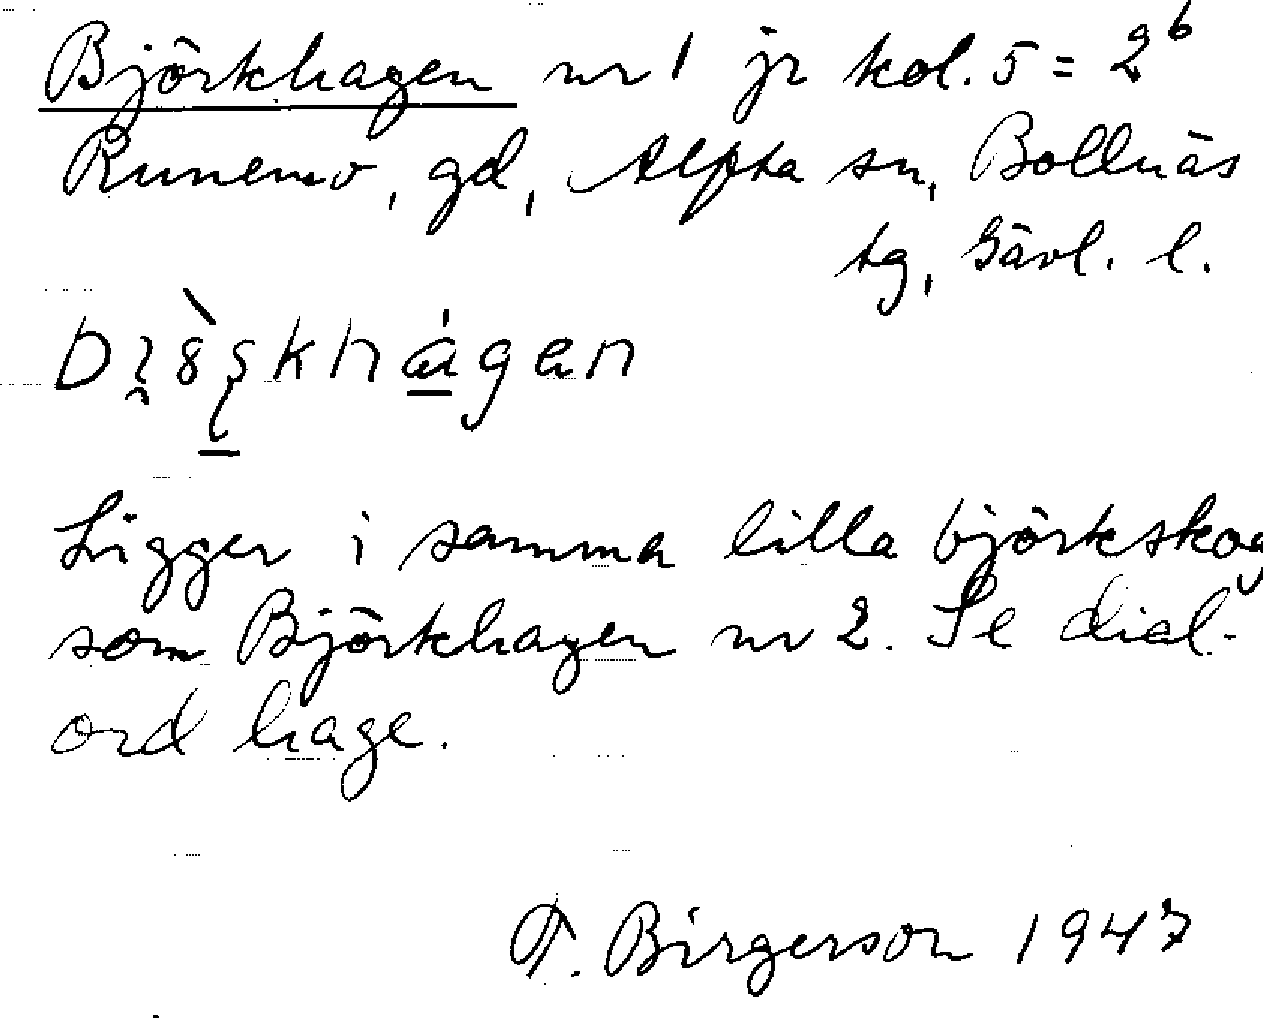 Björkhagen nr 1 jr kol. 5 = 2⁹ᵇ
Runemo, gd, Alfta sn, Bollnäs
tg, Gävl. l.
Ligger i samma lilla björkskog
som Björkhagen nr 2. Se dial-
ord hage.
T. Birgerson 1947